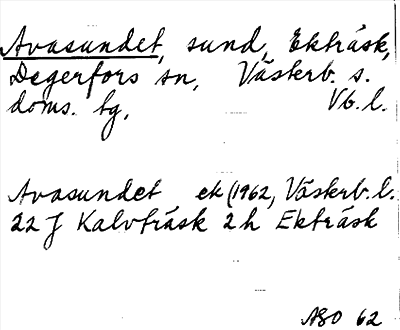 Avasundet, sund, Ekträsk,
Degerfors sn, Västerb. s.
doms. tg, Vb. l.
Avasundet ek (1962, Västerb. l.
22 J Kalvträsk 2 h Ekträsk
ASO 62